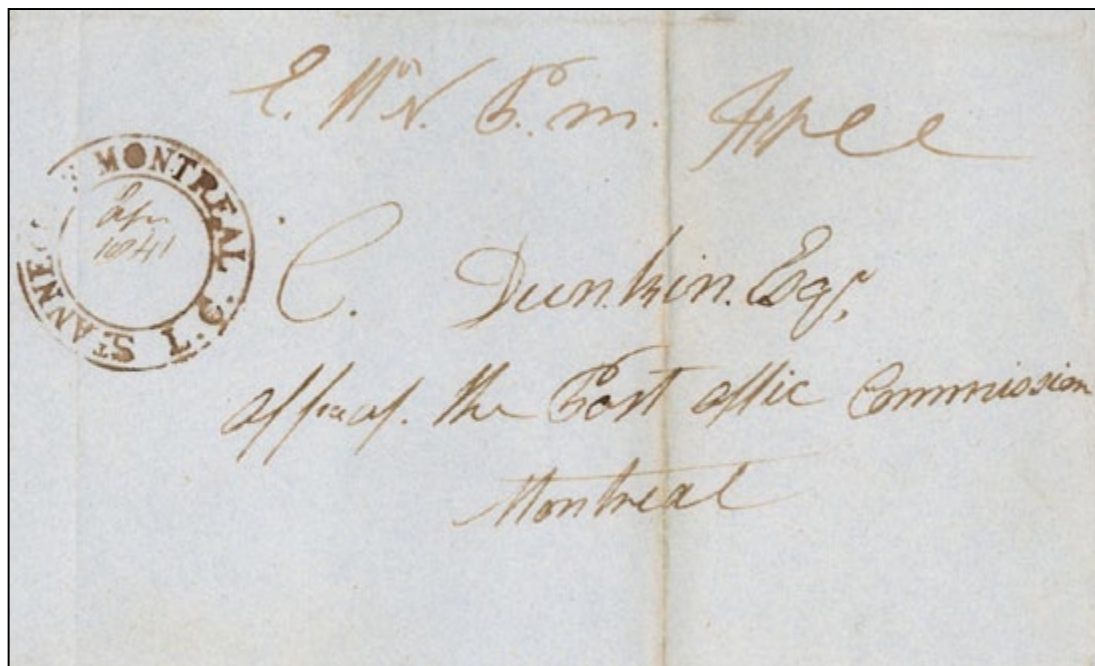 P.m. Free
MONTREAL
ST ANNE
1841
C. Dunkin. Esqr,
office of. the Post offic Commission
Montreal